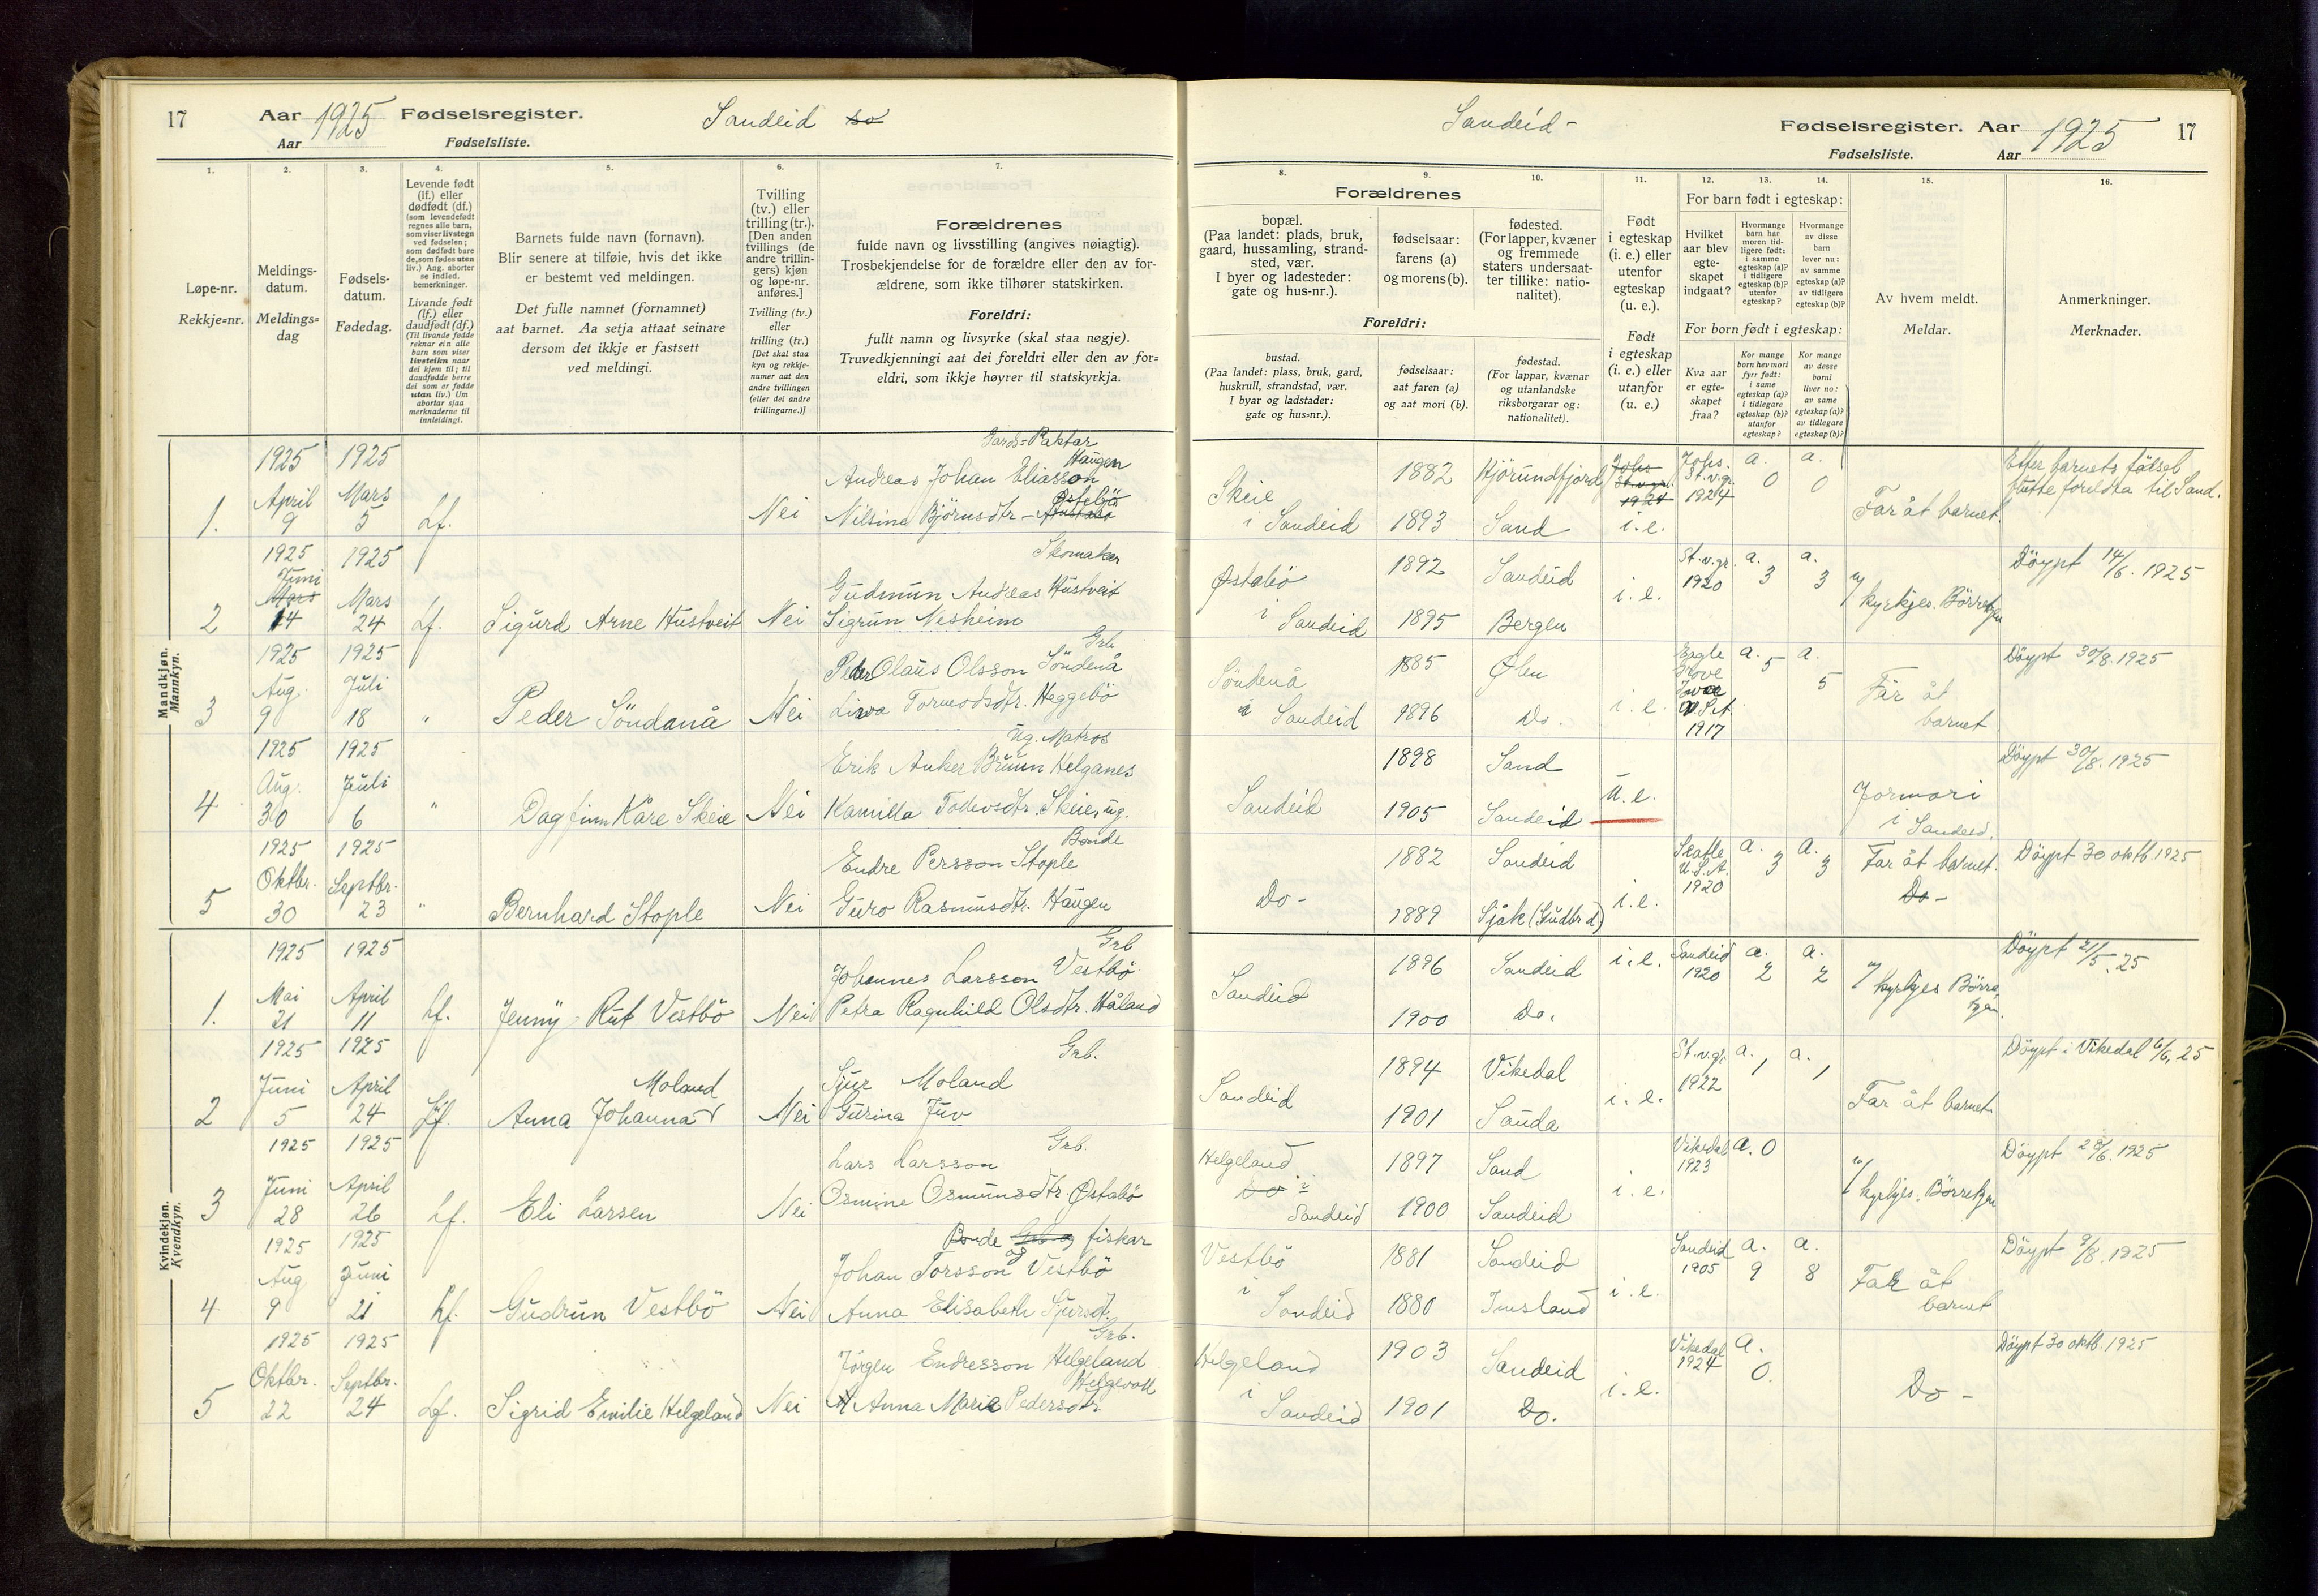 17 Aar 1925 Fødselsregister. Sandeid
Aar Fødselsliste.
1. 2. 3. 4. 5. 6. 7.
Løpe-nr.
Rekkje=nr.
Meldings-
datum.
Meldings=
dag
Fødsels-
datum.
Fødedag.
Levende født
(lf.) eller
dødfødt (df.)
(som levendefødt
regnes alle barn,
som viser livstegn
ved fødselen;
som dødfødt bare
de, som fødes uten
liv.) Ang. aborter
se indled.
bemerkninger.
Livande født
(lf.) eller
daudfødt (df.)
(Til livande fødde
reknar ein alle
barn som viser
livsteikn naar
dei kjem til; til
daudfødde berre
dei som er fødde
utan liv.) Um
abortar sjaa
merknaderne til
innleidingi.
Barnets fulde navn (fornavn).
Blir senere at tilføie, hvis det ikke
er bestemt ved meldingen.
Det fulle namnet (fornamnet)
aat barnet. Aa setja attaat seinare
dersom det ikkje er fastsett
ved meldingi.
Tvilling
(tv.) eller
trilling (tr.).
[Den anden
tvillings (de
andre trillin-
gers) kjøn
og løpe-nr.
anføres.]
Tvilling (tv.)
eller
trilling (tr.)
[Det skal staa
kyn og rekkje-
numer aat den
andre tvillingen
(eller dei andre
trillingarne.)]
Forældrenes
fulde navn og livsstilling (angives nøiagtig).
Trosbekjendelse for de forældre eller den av for-
ældrene, som ikke tilhører statskirken.
Foreldri:
fullt namn og livsyrke (skal staa nøgje).
Truvedkjenningi aat dei foreldri eller den av for=
eldri, som ikkje høyrer til statskyrkja.
Mandkjøn.
Mannkyn.
1925 1925 Gards=Paktar
Haugen
April Mars Andreas Johan Eliasson
Østebjø
1. 9 5 Lf. Nei Nilsine Björnsdtr -
1925 1925 Skomaker
Juni
Mars Mars Gudmun Andreas Hustveit
2 14 24 Lf. Sigurd Arne Hustveit Nei Sigrun Nesheim
1925 1925 Grb
Aug. Juli Peder Olaus Olsson Söndenå
3 9 18 " Peder Söndanå Nei Lina Tormodsdtr. Heggebö
1925 1925 ug. Matros
Aug. Juli Erik Anker Bruun Helganes
4 30 6 " Dagfinn Kåre Skeie Nei Kamilla Todevsdtr. Skeie, ug.
1925 1925 Bonde
Oktbr. Septbr. Endre Persson Stople
5 30 23 " Bernhard Stople Nei Guro Rasmusdtr. Haugen
Kvindekjøn.
Kvendkyn.
1925 1925 Grb
Mai April Johannes Larsson Vestbö
1. 21 11 Lf. Jenny Rut Vestbö Nei Petra Ragnhild Olsdtr. Håland
1925 1925 Grb.
Juni April Moland Sjur Moland
2 5 24 Lf. Anna Johanna Nei Gurina Juv
1925 1925 Grb.
Juni April Lars Larsson
3 28 26 Lf. Eli Larsen Nei Osmine Osmunsdtr. Østabö
1925 1925 Bonde Grb og fiskar
og
Aug Juni Johan Torsson Vestbö
4 9 21 Lf. Gudrun Vestbö Nei Anna Elisabeth Sjursd.
1925 1925 Grb.
Oktbr. Septbr. Jörgen Endresson Helgeland
Helgevoll
5 22 24 Lf. Sigrid Emilie Helgeland Nei Anna Marie Pedersdtr.
Sandeid- Fødselsregister. Aar 1925 17
Fødselsliste. Aar
8. 9. 10. 11. 12. 13. 14. 15. 16.
Forældrenes
bopæl.
(Paa landet: plads, bruk,
gaard, hussamling, strand-
sted, vær.
I byer og ladesteder:
gate og hus-nr.).
fødselsaar:
farens (a)
og morens (b).
fødested.
(For lapper, kvæner
og fremmede
staters undersaat-
ter tillike: natio-
nalitet).
Foreldri:
bustad.
(Paa landet: plass, bruk, gard,
huskrull, strandstad, vær.
I byar og ladstader:
gate og hus=nr.).
fødselsaar:
aat faren (a)
og aat mori (b).
fødestad.
(For lappar, kvænar
og utanlandske
riksborgarar og:
nationalitet).
Født
i egteskap
(i. e.) eller
utenfor
egteskap
(u. e.).
Født
i egteskap
(i. e.) eller
utanfor
(u. e.)
For barn født i egteskap:
Hvilket
aar blev
egte-
skapet
indgaat?
Hvormange
barn har
moren tid-
ligere født:
i samme
egteskap (a)?
i tidligere
egteskap (b)?
utenfor
egteskap?
Hvormange
av disse
barn
lever nu:
av samme
egteskap (a)?
av tidligere
egteskap (b)?
For born født i egteskap:
Kva aar
er egte-
skapet
fraa?
Kor mange
born hev mori
fyrr født:
i same
egteskap (a)?
i tidlegare
egteskap (b)?
utanfor
egteskap?
Kor mange
av desse
borni
liver no:
av same
egteskap (a)?
av tidlegare
egteskap (b)?
Av hvem meldt.
Meldar.
Anmerkninger.
Merknader.
Skeie 1882 Hjörundfjord Johs. St.v.gr. 1924 Johs. St.v.g. 1924 a. 0 a. 0 Etter barnets födsel
flutte foreldra til Sand.
i Sandeid 1893 Sand i.e. Far åt barnet.
Østabö 1892 Sandeid i.e. St.v.gr. 1920 a. 3 a. 3 Döypt 14/6. 1925
i Sandeid 1895 Bergen v/ kyrkjes. Börretzen
Söndenå 1885 Ølen i.e. Eagle Grove Iowa U.S.A. 1917 a. 5 a. 5 Döypt 30/8. 1925
i Sandeid 1896 Do. Far åt
barnet
1898 Sand Döypt 30/8. 1925
Sandeid 1905 Sandeid U.e. Jormori
i Sandeid.
1882 Sandeid Seatle U.S.A. 1920 a. 3 a. 3 Far åt barnet. Döypt 30 oktb. 1925
Do- 1889 Sjåk (Gudbrd) i.e. Do-
Sandeid 1896 Sandeid i.e. Sandeid 1920 a. 2 a. 2 Döypt 21/5. 25
1900 Do. v/ kyrkjes Börretzen.
Sandeid 1894 Vikedal i.e. St.v.gr. 1922 a. 1 a. 1 Döypt i Vikedal 6/6, 25
1901 Sauda Far åt barnet.
Helgeland 1897 Sand i.e. Vikedal 1923 a. 0 Döypt 28/6. 1925
Do i
Sandeid 1900 Sandeid v/ kyrkjes. Börretzen
Vestbö 1881 Sandeid i.e. Sandeid 1905 a. 9 a. 8 Döypt 9/8. 1925
i Sandeid 1880 Imsland Far åt
barnet
Helgeland 1903 Sandeid i.e. Vikedal 1924 a. 0. Döypt 30 oktb. 1925
i Sandeid 1901 Do. Do-